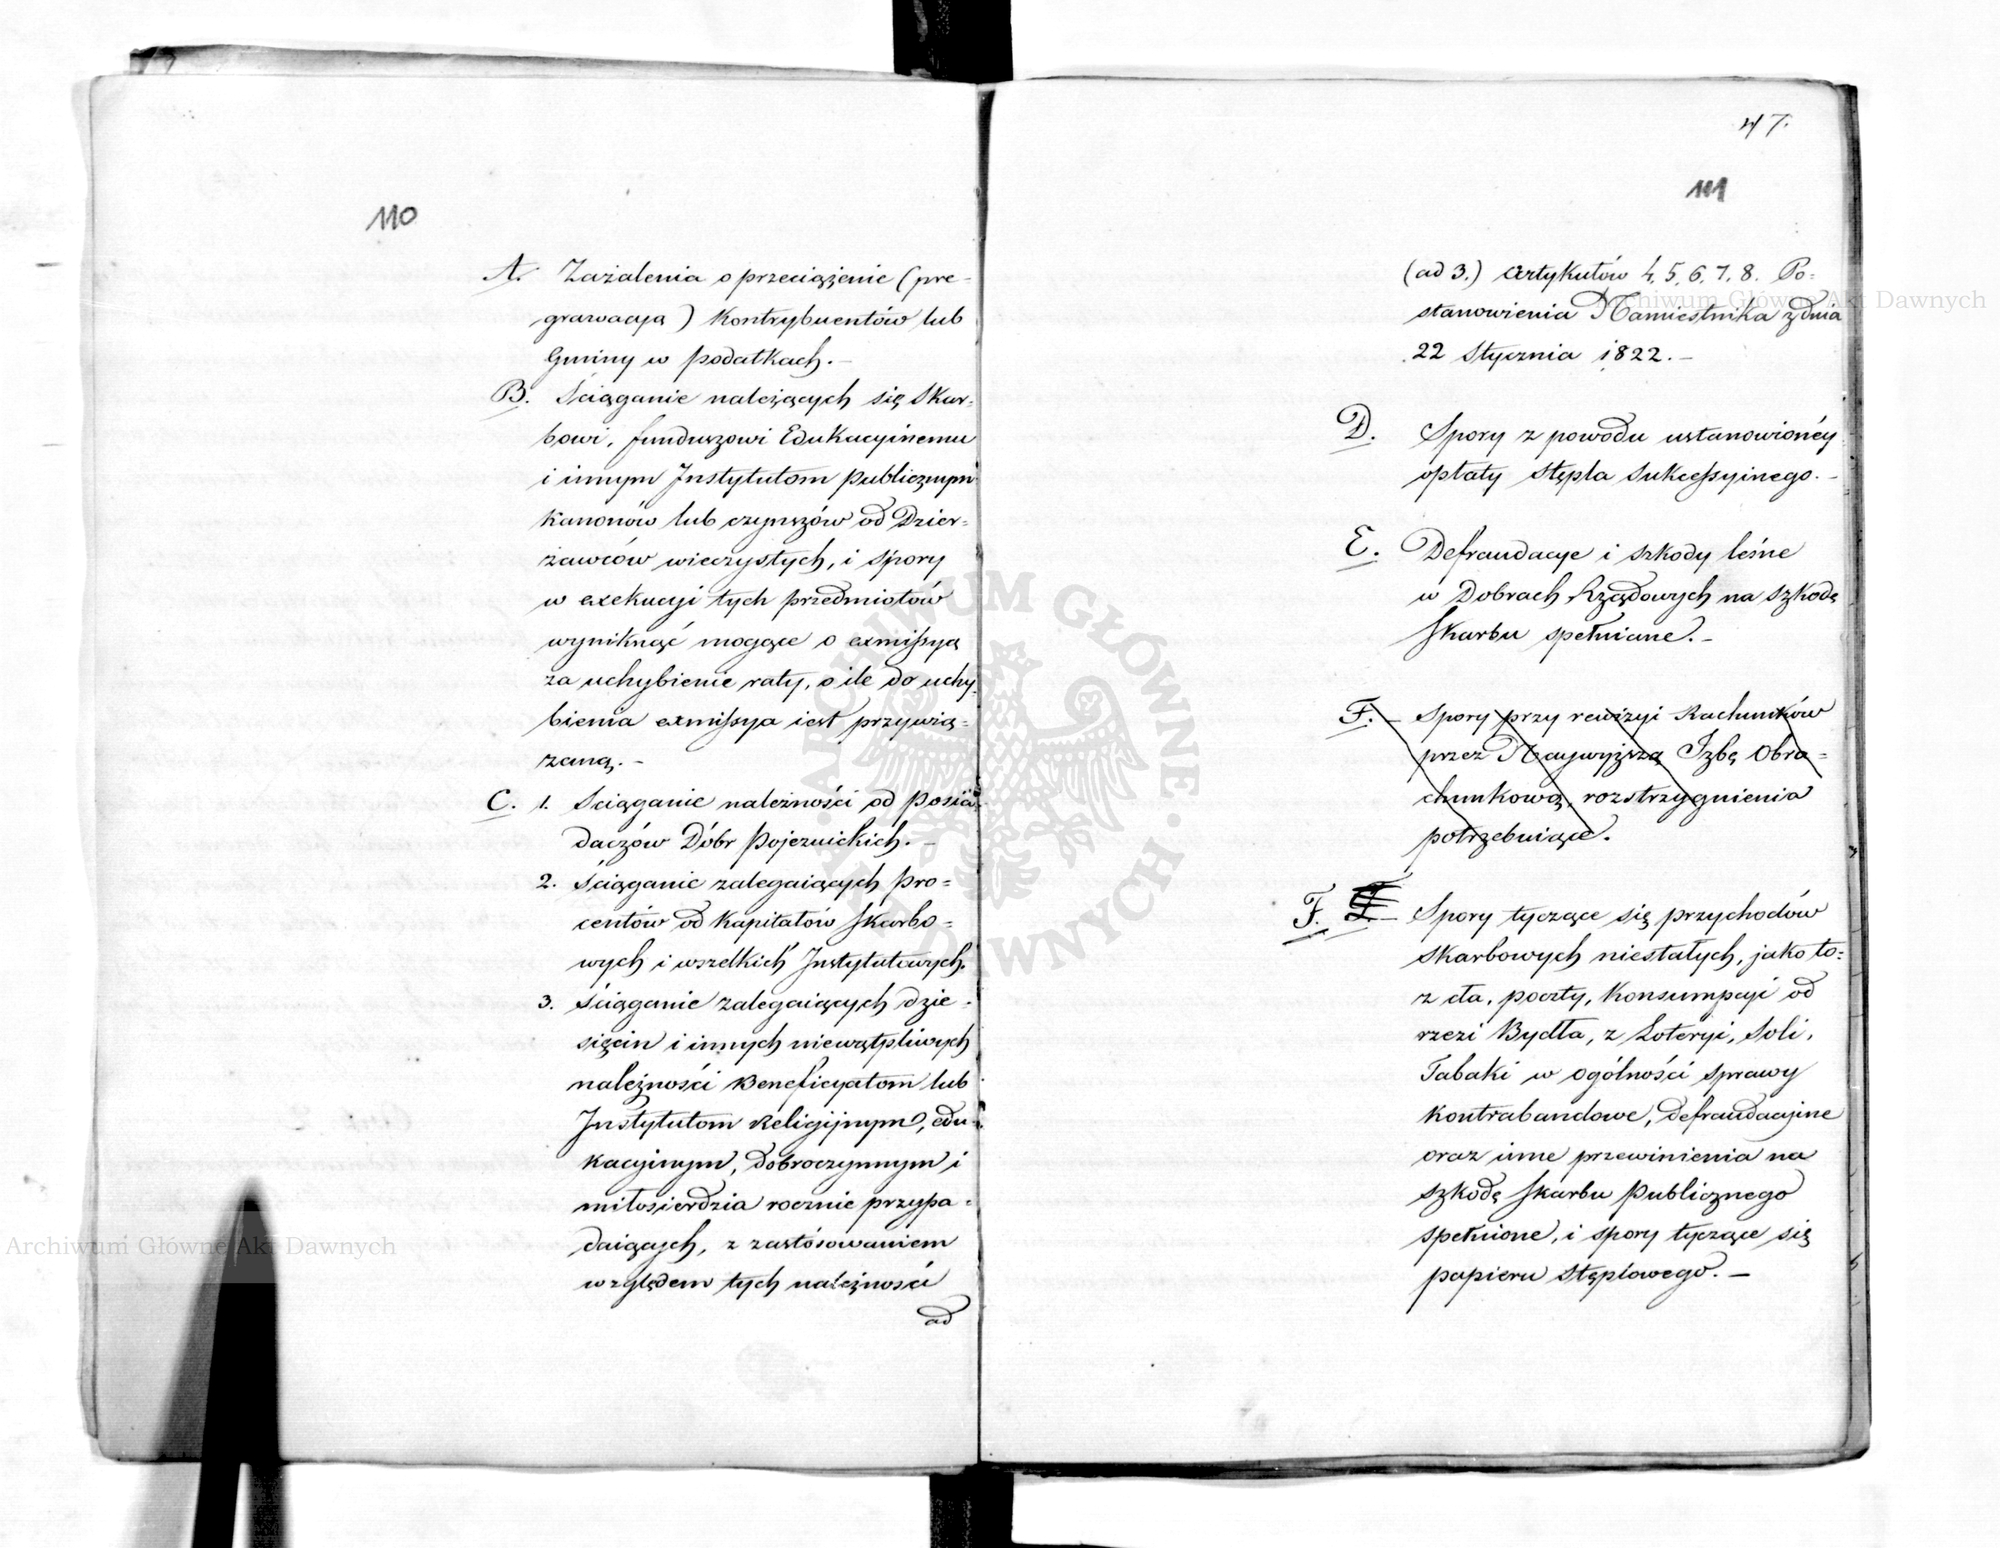 110
A. Zażalenia o przeciążenie (pre-
grawacyą) Kontrybuentów lub
Gminy w podatkach.–
B. Ściąganie należących się Skar-
bowi, funduszowi Edukacyinemu
i innym Instytutom publicznym
kanonów lub czynszów od Dzier-
żawców wieczystych, i spory
w exekucyi tych przedmiotów
wyniknąć mogące o exmissyą
za uchybienie raty, o ile do uchy-
bienia exmissya iest przywią-
zaną.–
C. 1. Ściąganie należności od posia-
daczów Dóbr pojezuickich.–
2. Ściąganie zalegaiących pro-
centów od Kapitałów skarbo-
wych i wszelkich Instytutowych.
3. Ściąganie zalegaiących dzie-
sięcin i innych niewątpliwych
należności Beneficyatom lub
Instytutom Religijnym, edu-
kacyinym, dobroczynnym i
miłosierdzia rocznie przypa-
daiących, z zastósowaniem
względem tych należności
ad
47.
111
(ad 3.) artykułów 4, 5, 6, 7, 8. Po-
stanowienia Namiestnika z dnia
22 Stycznia 1822.–
D. Spory z powodu ustanowionéy
opłaty stępla sukcessyinego.–
E. Defraudacye i szkody leśne
w Dobrach Rządowych na szkodę
skarbu spełniane.–
F.– Spory przy rewizyi Rachunków
przez Naywyższą Izbę Obra-
chunkową, rozstrzygnienia
potrzebuiące.
F. – Spory tyczące się przychodów
skarbowych niestałych, jako to-
z cła, poczty, konsumpcyi od
rzezi Bydła, z Loteryi, Soli,
Tabaki w ogólności sprawy
kontrabandowe, defraudacyine
oraz inne przewinienia na
szkodę skarbu publicznego
spełnione, i spory tyczące się
papieru stęplowego.–
Archiwum Główne Akt Dawnych
Archiwum Główne Akt Dawnych
ARCHIWUM GŁÓWNE AKT DAWNYCH